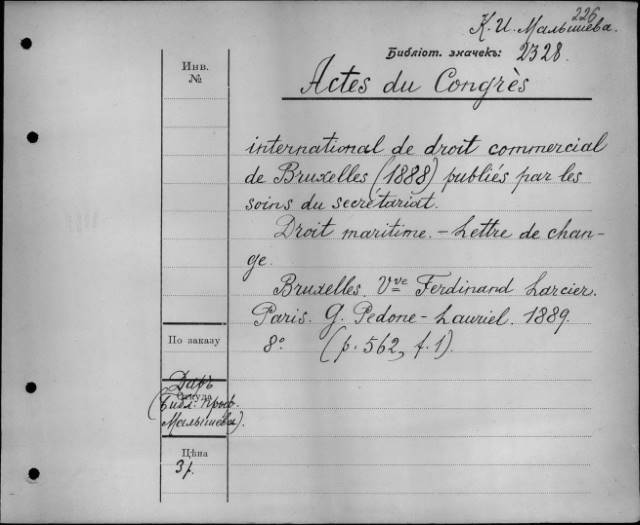 226
К. И. Малышева.
Библіот. значекъ: 2328.
Инв.
№
Actes du Congrès
international de droit commercial
de Bruxelles (1888) publiés par les
soins du secrétariat.
Droit maritime. - Lettre de chan-
ge.
Bruxelles. Vve Ferdinand Larcier.
Paris. G. Pedone-Lauriel. 1889.
По заказу
8° (p. 562, f. 1).
Даръ
Откуда
(Библ. проф.
Малышева).
Цѣна
3 р.